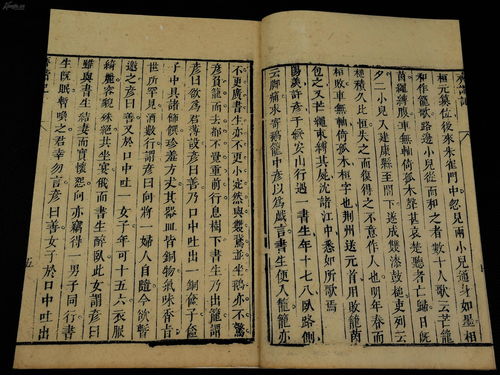 桓元篡位後來朱雀門中忽見兩小兒通身如墨相
和作籠歌路邊小兒從而和之者數十人歌云芒籠
茵繩縛腹車無軸倚孤木聲甚哀楚聽者亡歸日既
夕二小兒入建康縣至閣下遂成雙漆鼓槌吏列云
槌積久比恒失之而復得之不意作人也明年春而
桓敗車無軸倚孤木桓字也荊州送元首用敗籠茵
包之又芒繩束縛其屍沈諸江中悉如所歌焉
陽羨許彥于綏安山行遇一書生年十七八臥路側
云腳痛求寄鵞籠中彥以為戲言書生便入籠籠亦
不更廣書生亦不更小宛然與雙鵞並坐鵞亦不驚
彥負籠而去都不覺重前行息樹下書生乃出籠謂
彥曰欲為君薄設彥曰善乃口中吐出一銅奩子奩
子中具諸饌殽珍羞方丈其器皿皆銅物氣味香旨
世所罕見酒數行謂彥曰向將一婦人自隨今欲暫
邀之彥曰善又於口中吐一女子年可十五六衣服
綺麗容貌殊絕共坐宴俄而書生醉臥此女謂彥曰
雖與書生結妻而實懷怨向亦竊得一男子同行書
生既眠暫喚之君幸勿言彥曰善女子於口中吐出